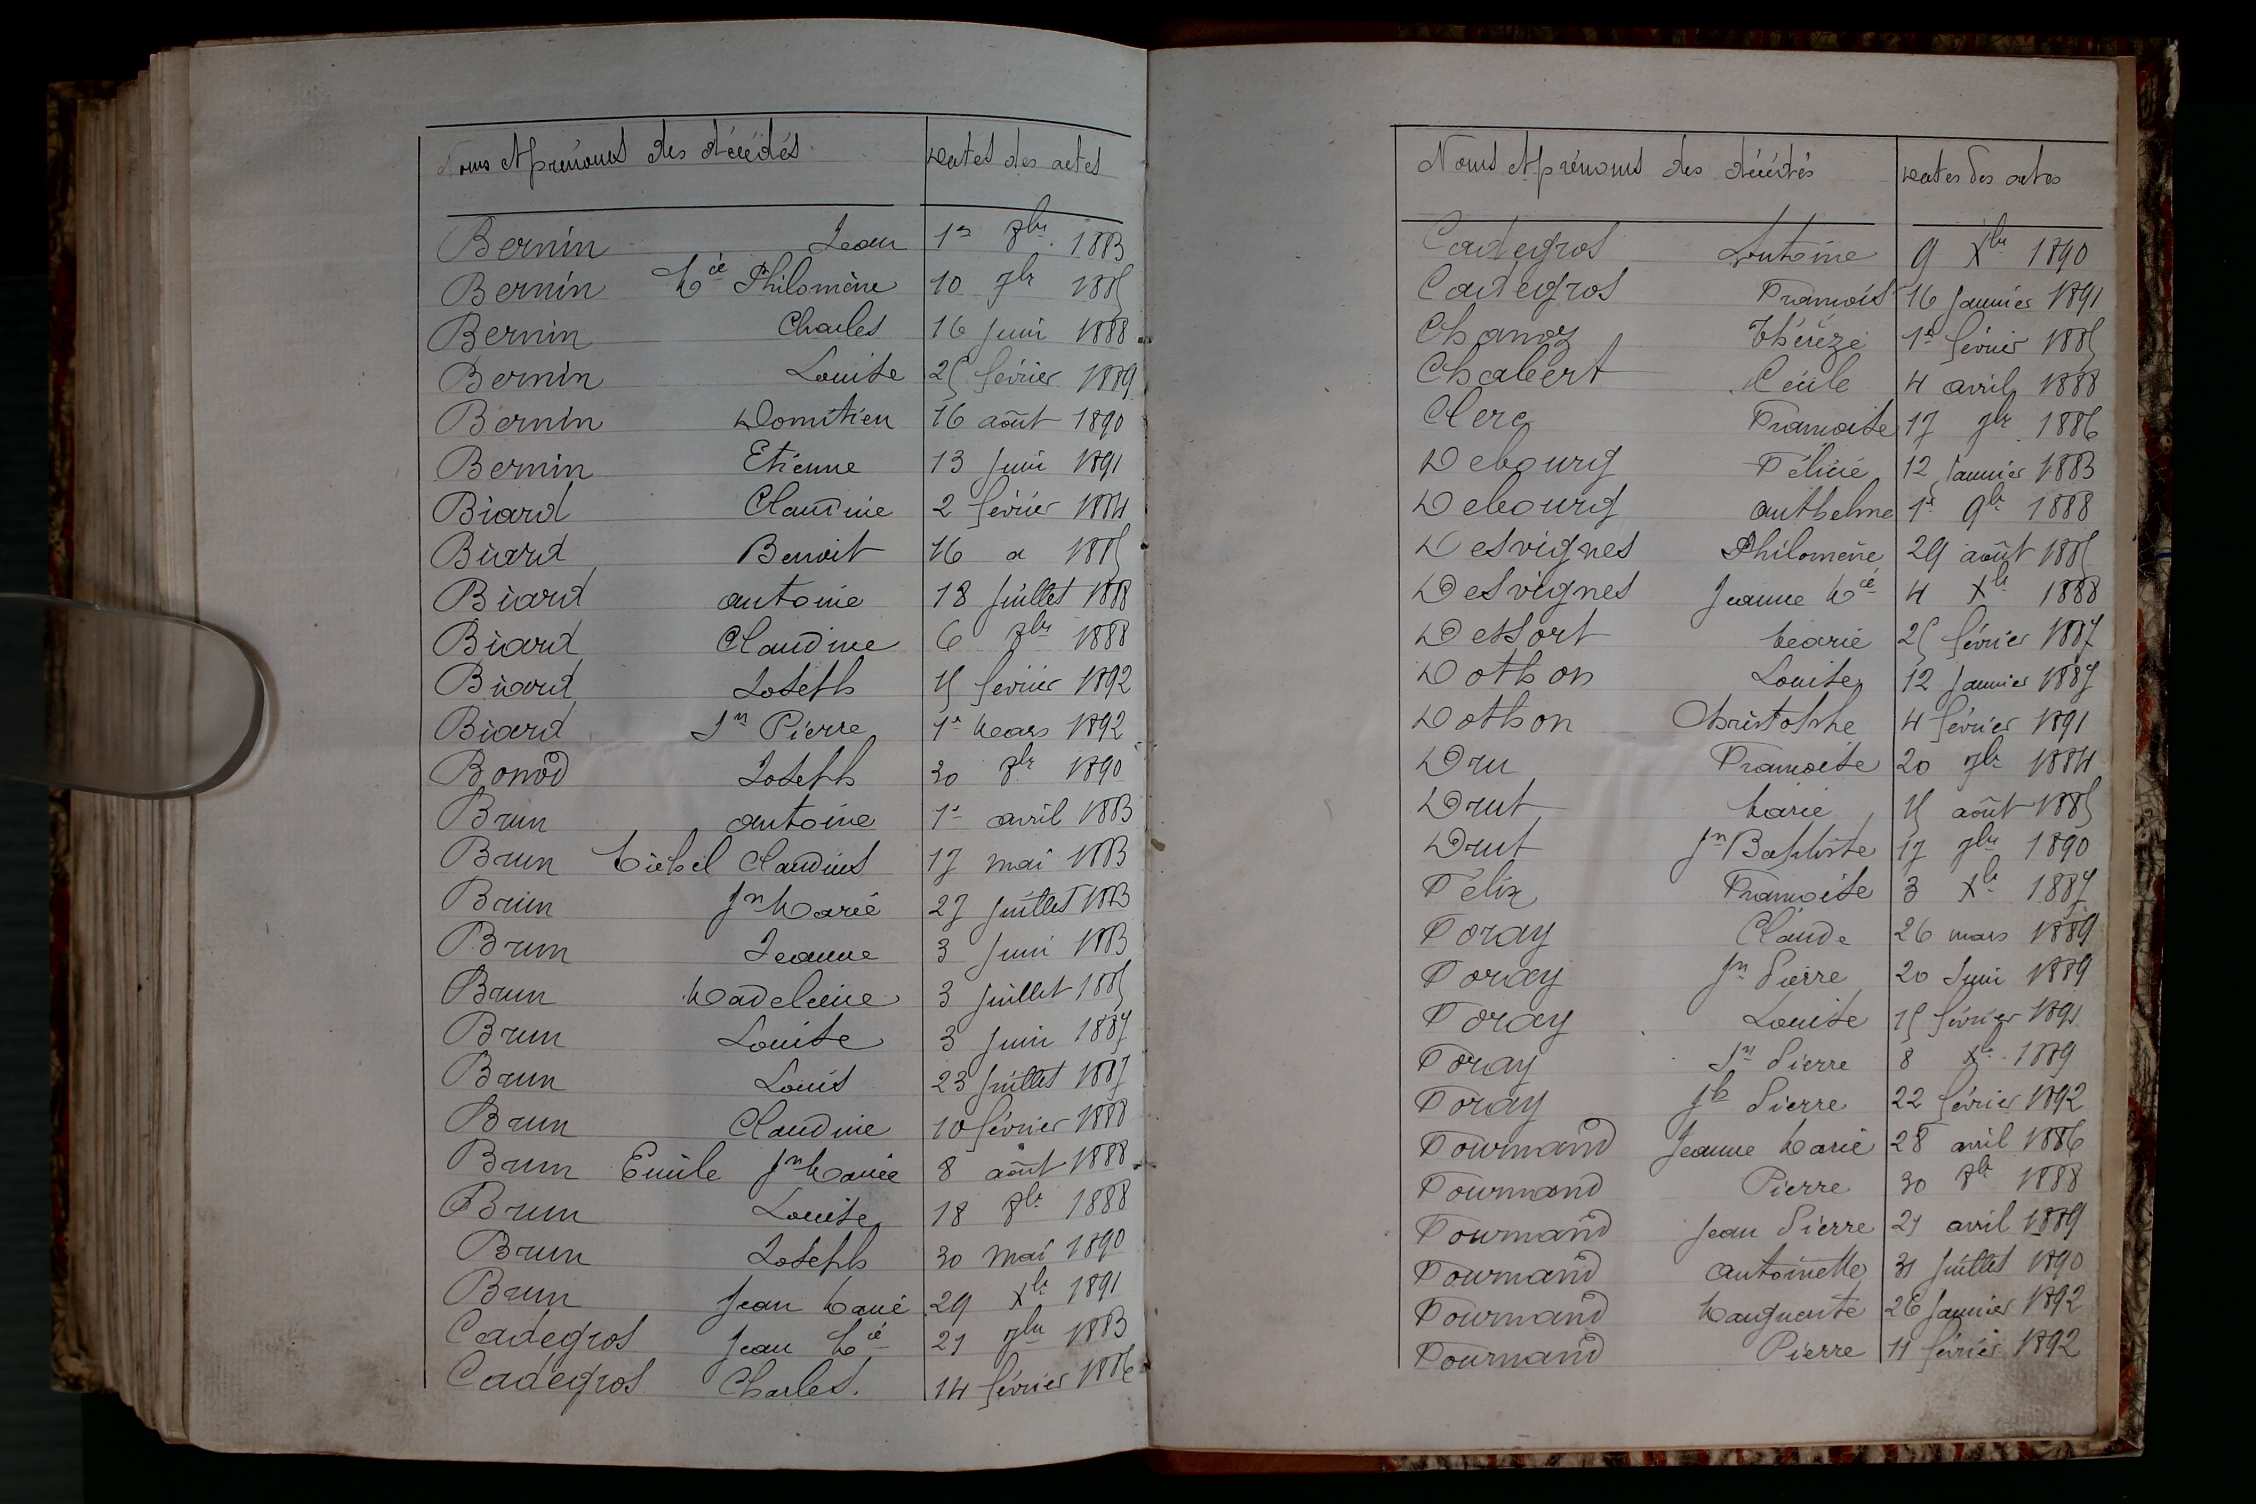 Noms et prénoms des décédés Dates des actes
Bernin Jean 1er 8bre 1883
Bernin Mie Philomène 10 7bre 1885
Bernin Charles 16 Juin 1888
Bernin Louise 25 février 1889
Bernin Domitien 16 août 1890
Bernin Etienne 13 Juin 1891
Biard Claudine 2 février 1884
Biard Benoit 16 a 1885
Biard antoine 18 Juillet 1888
Biard Claudine 6 8bre 1888
Biard Joseph 15 février 1892
Biard Jn Pierre 1er Mars 1892
Bonod Joseph 30 8bre 1890
Brun antoine 1er avril 1883
Brun Michel Claudius 17 mai 1883
Brun Jn Marie 27 Juillet 1883
Brun Jeanne 3 Juin 1883
Brun Madeleine 3 Juillet 1885
Brun Louise 3 Juin 1887
Brun Louis 23 Juillet 1887
Brun Claudine 10 février 1888
Brun Emile Jn Marie 8 août 1888
Brun Louise 18 8bre 1888
Brun Joseph 30 mai 1890
Brun Jean Marie 29 Xbre 1891
Cadegros Jean Mie 21 7bre 1883
Cadegros Charles. 14 février 1886
Noms et prénoms des décédés Dates des actes
Cadegros Antoine 9 Xbre 1890
Cadegros François 16 Janvier 1891
Chanoz Thérèze 1er février 1885
Chabert Cécile 4 avril 1888
Clerc Françoise 17 7bre 1886
Debourg Félicie 12 Janvier 1883
Debourg anthelme 1er 9bre 1888
Desvignes Philomène 29 août 1885
Desvignes Jeanne Mie 4 Xbre 1888
Dessort Marie 25 février 1887
Dothon Louise 12 Janvier 1887
Dothon Christophe 4 février 1891
Dru Françoise 20 7bre 1884
Drut Marie 15 août 1885
Drut Jn Baptiste 17 7bre 1890
Félix Françoise 3 Xbre 1887
Foray Claude 26 mars 1889
Foray Jn Pierre 20 Juin 1889
Foray Louise 15 février 1891
Foray Jn Pierre 8 Xbre 1889
Foray Jh Pierre 22 février 1892
Fournand Jeanne Marie 28 avril 1886
Fournand Pierre 30 8bre 1888
Fournand Jean Pierre 21 avril 1889
Fournand antoinette 31 Juillet 1890
Fournand Marguerite 26 Janvier 1892
Fournand Pierre 11 février 1892